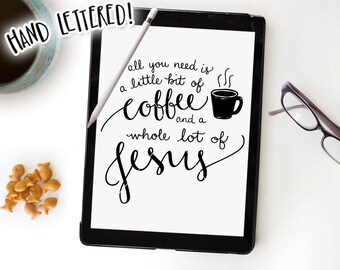 HAND LETTERED!
all you need is
a little bit of
coffee
and a
whole lot of
Jesus